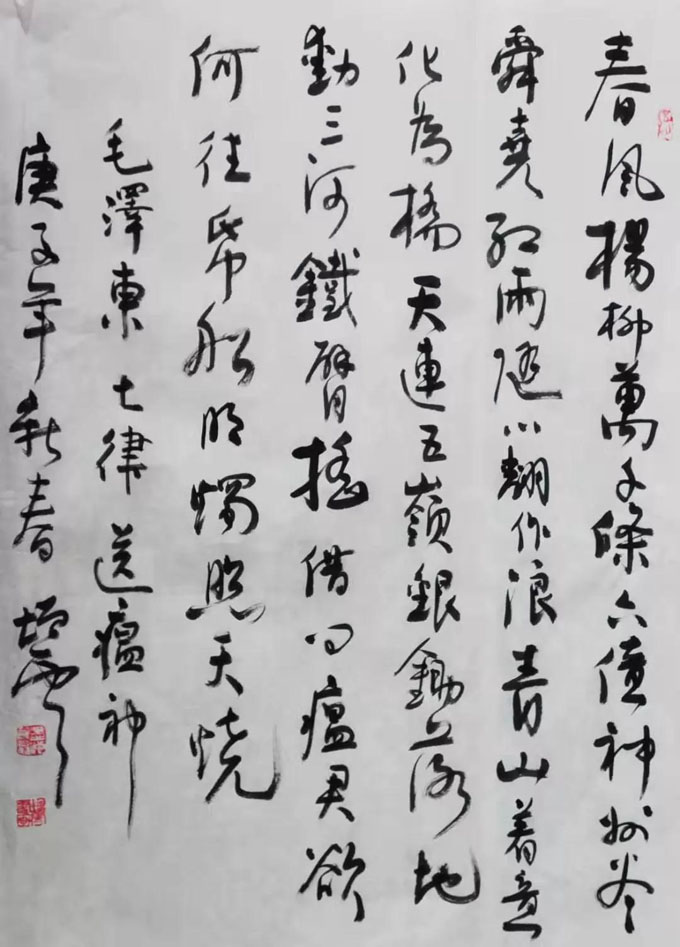 春風楊柳萬千條六億神州尽
舜堯紅雨隨心翻作浪青山着意
化為橋天連五嶺銀鋤落地
動三河鐵臂搖借问瘟君欲
何往帋船明燭照天燒
毛澤東七律送瘟神
庚子年新春